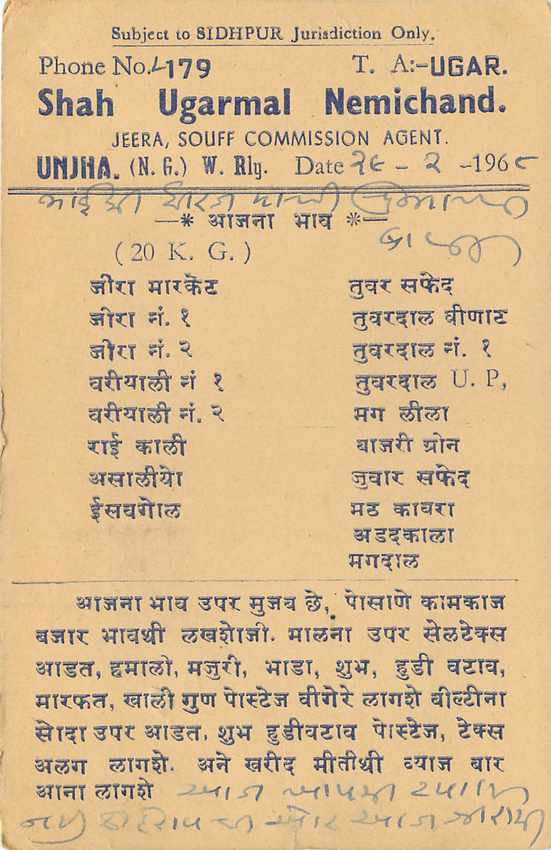 Subject to SIDHPUR Jurisdiction Only.
Phone No. 179 T. A:-UGAR.
Shah Ugarmal Nemichand.
JEERA, SOUFF COMMISSION AGENT.
UNJHA. (N. G.) W. Rly. Date 26 - 2 - 1968
—* आजना भाव *—
(20 K. G.)
जीरा मारकेट
जीरा नं. १
जीरा नं. २
वरीयाली नं १
वरीयाली नं. २
राई काली
असालीयो
ईसबगोल
तुवर सफेद
तुवरदाल वीणाट
तुवरदाल नं. १
तुवरदाल U. P,
मग लीला
बाजरी ग्रोन
जुवार सफेद
मठ कावरा
अडदकाला
मगदाल
आजना भाव उपर मुजब छे, पोसाणे कामकाज
बजार भावथी लखशोजी. मालना उपर सेलटेक्स
आडत, हमाली, मजुरी, भाडा, शुभ, हुडी वटाव,
मारफत, खाली गुण पोस्टेज वीगेरे लागशे बील्टीना
सोदा उपर आडत, शुभ हुडीवटाव पोस्टेज, टेक्स
अलग लागशे. अने खरीद मीतीथी व्याज बार
आना लागशे